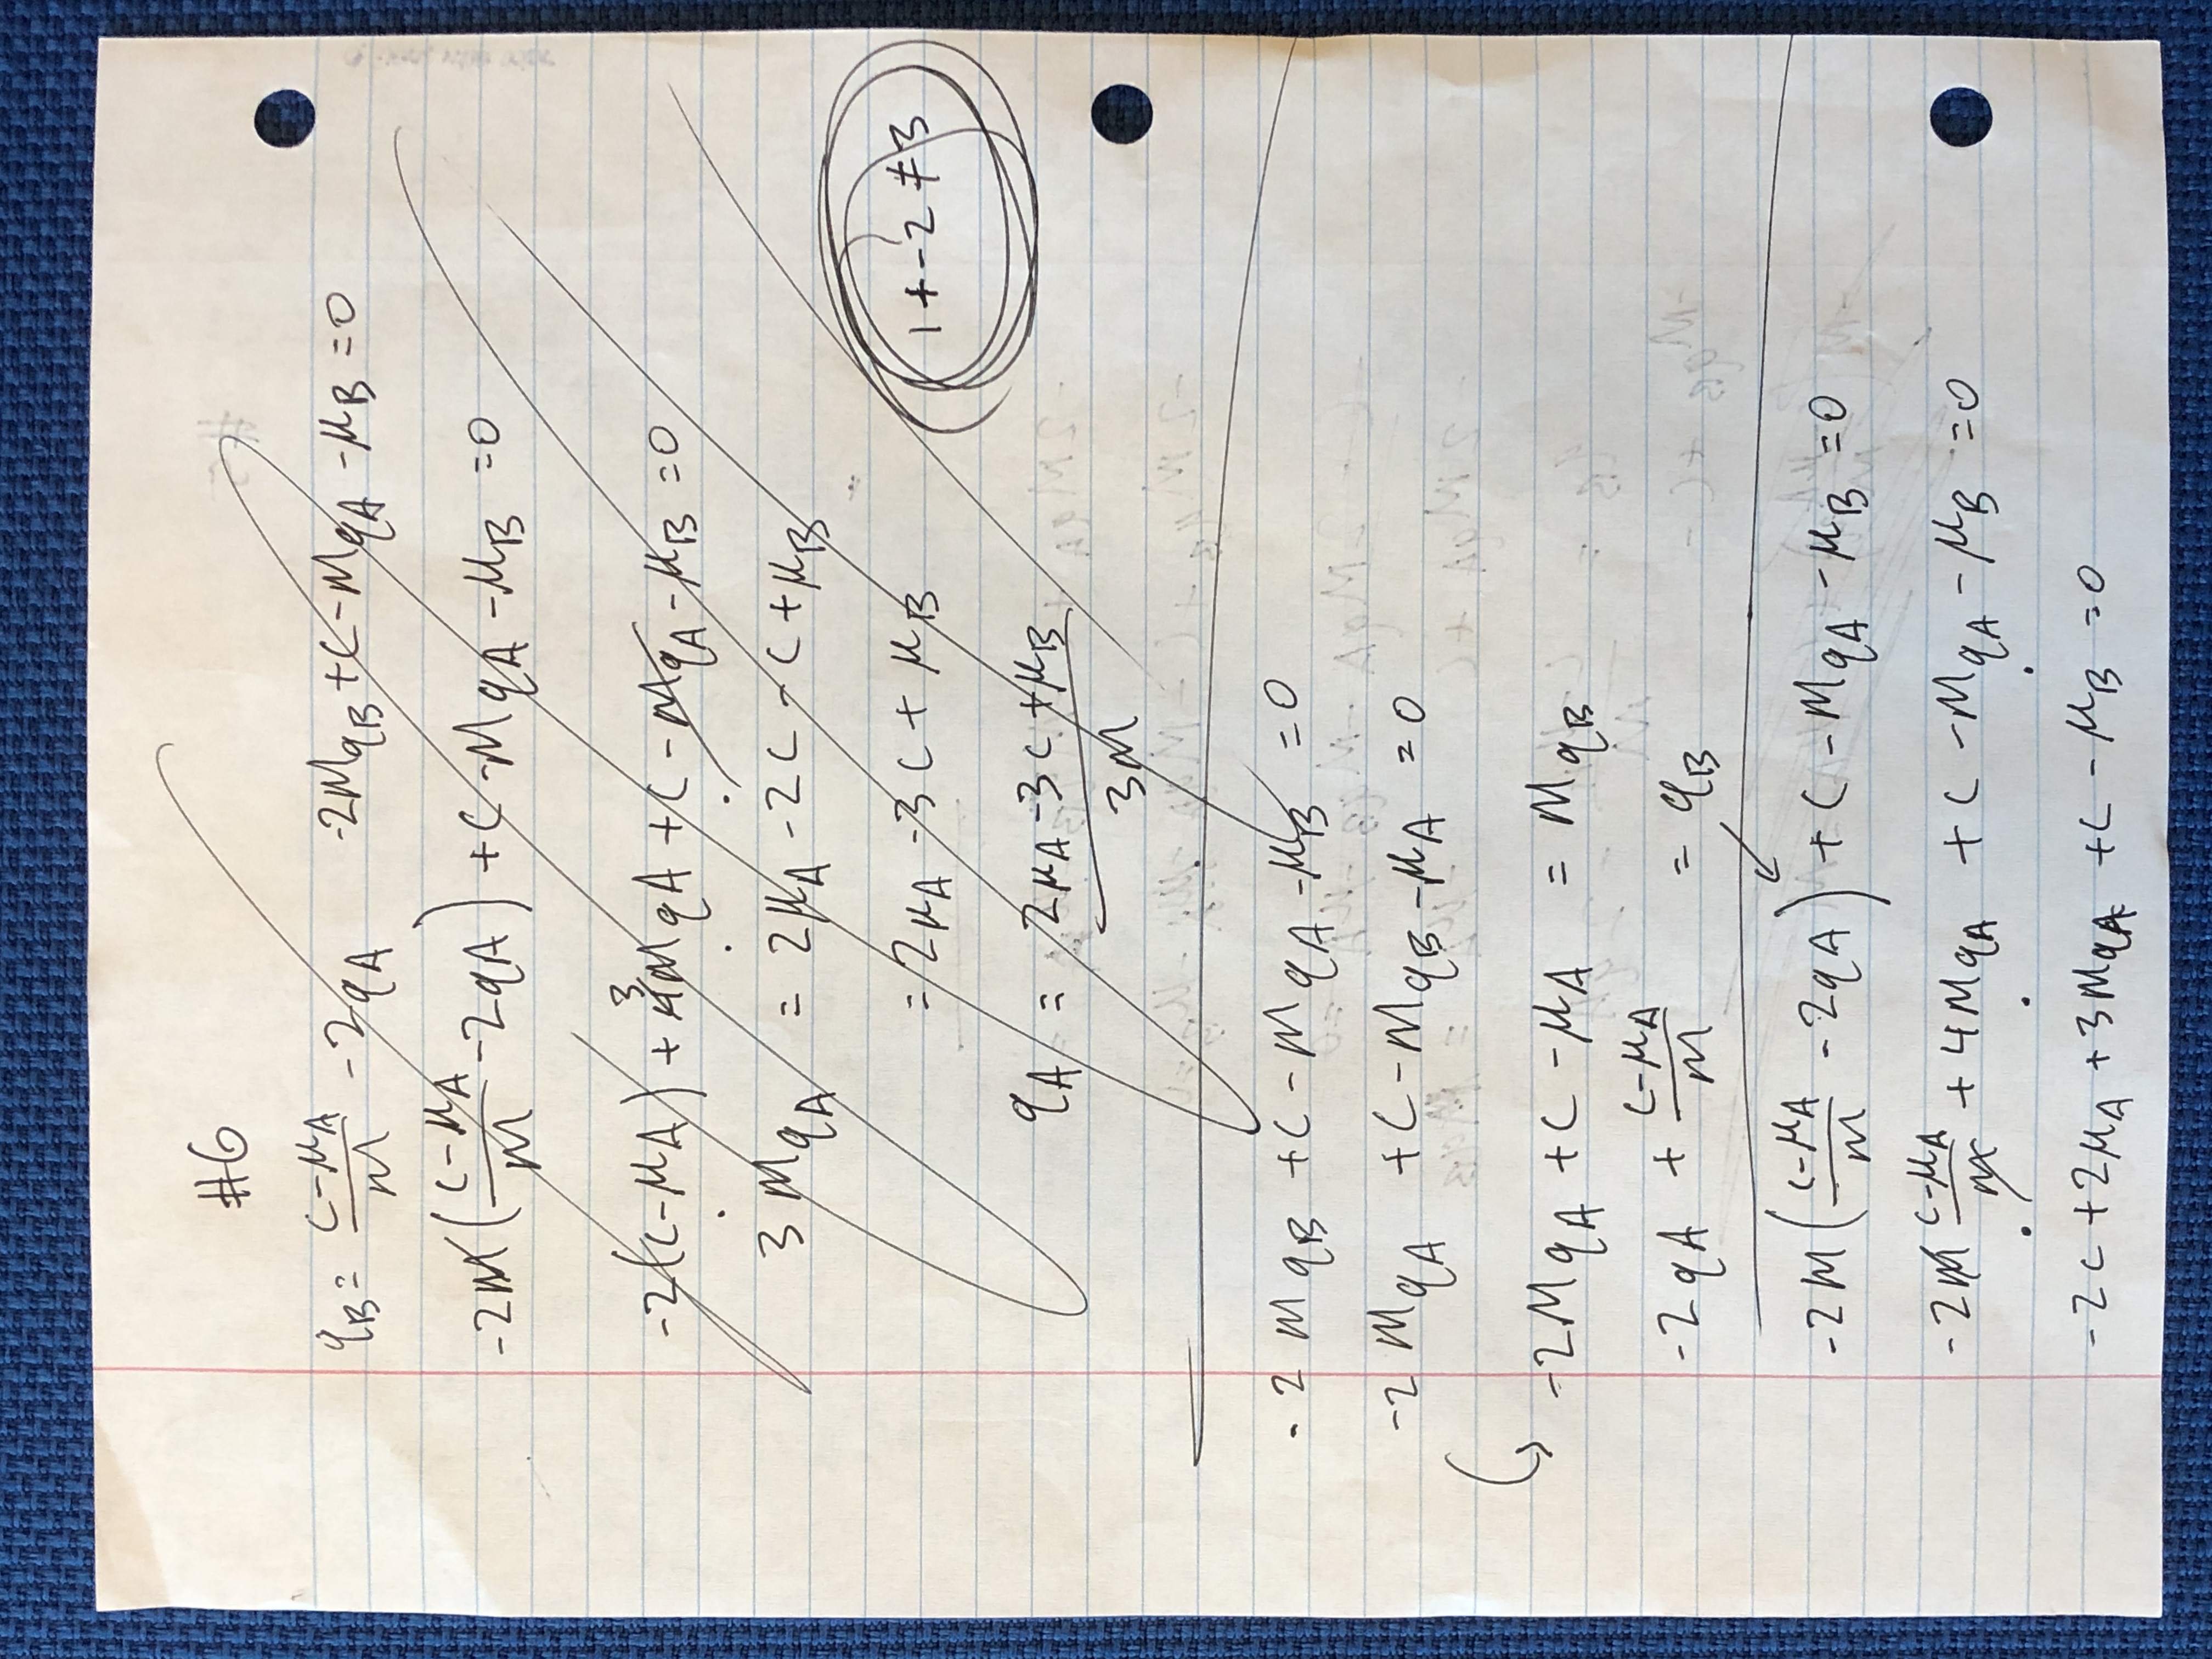 #6
q_B = (c-μ_A)/m - 2q_A    -2mq_B + c - mq_A - μ_B = 0
-2m((c-μ_A)/m - 2q_A) + c - mq_A - μ_B = 0
-2(c-μ_A) + 3mq_A + c - mq_A - μ_B = 0
3mq_A = 2μ_A - 2c - c + μ_B
= 2μ_A - 3c + μ_B
1 + -2 ≠ 3
q_A = (2μ_A - 3c + μ_B)/3m
-2mq_B + c - mq_A - μ_B = 0
-2mq_A + c - mq_B - μ_A = 0
-2mq_A + c - μ_A = mq_B
-2q_A + (c-μ_A)/m = q_B
-2m((c-μ_A)/m - 2q_A) + c - mq_A - μ_B = 0
-2m (c-μ_A)/m + 4mq_A + c - mq_A - μ_B = 0
-2c + 2μ_A + 3mq_A + c - μ_B = 0